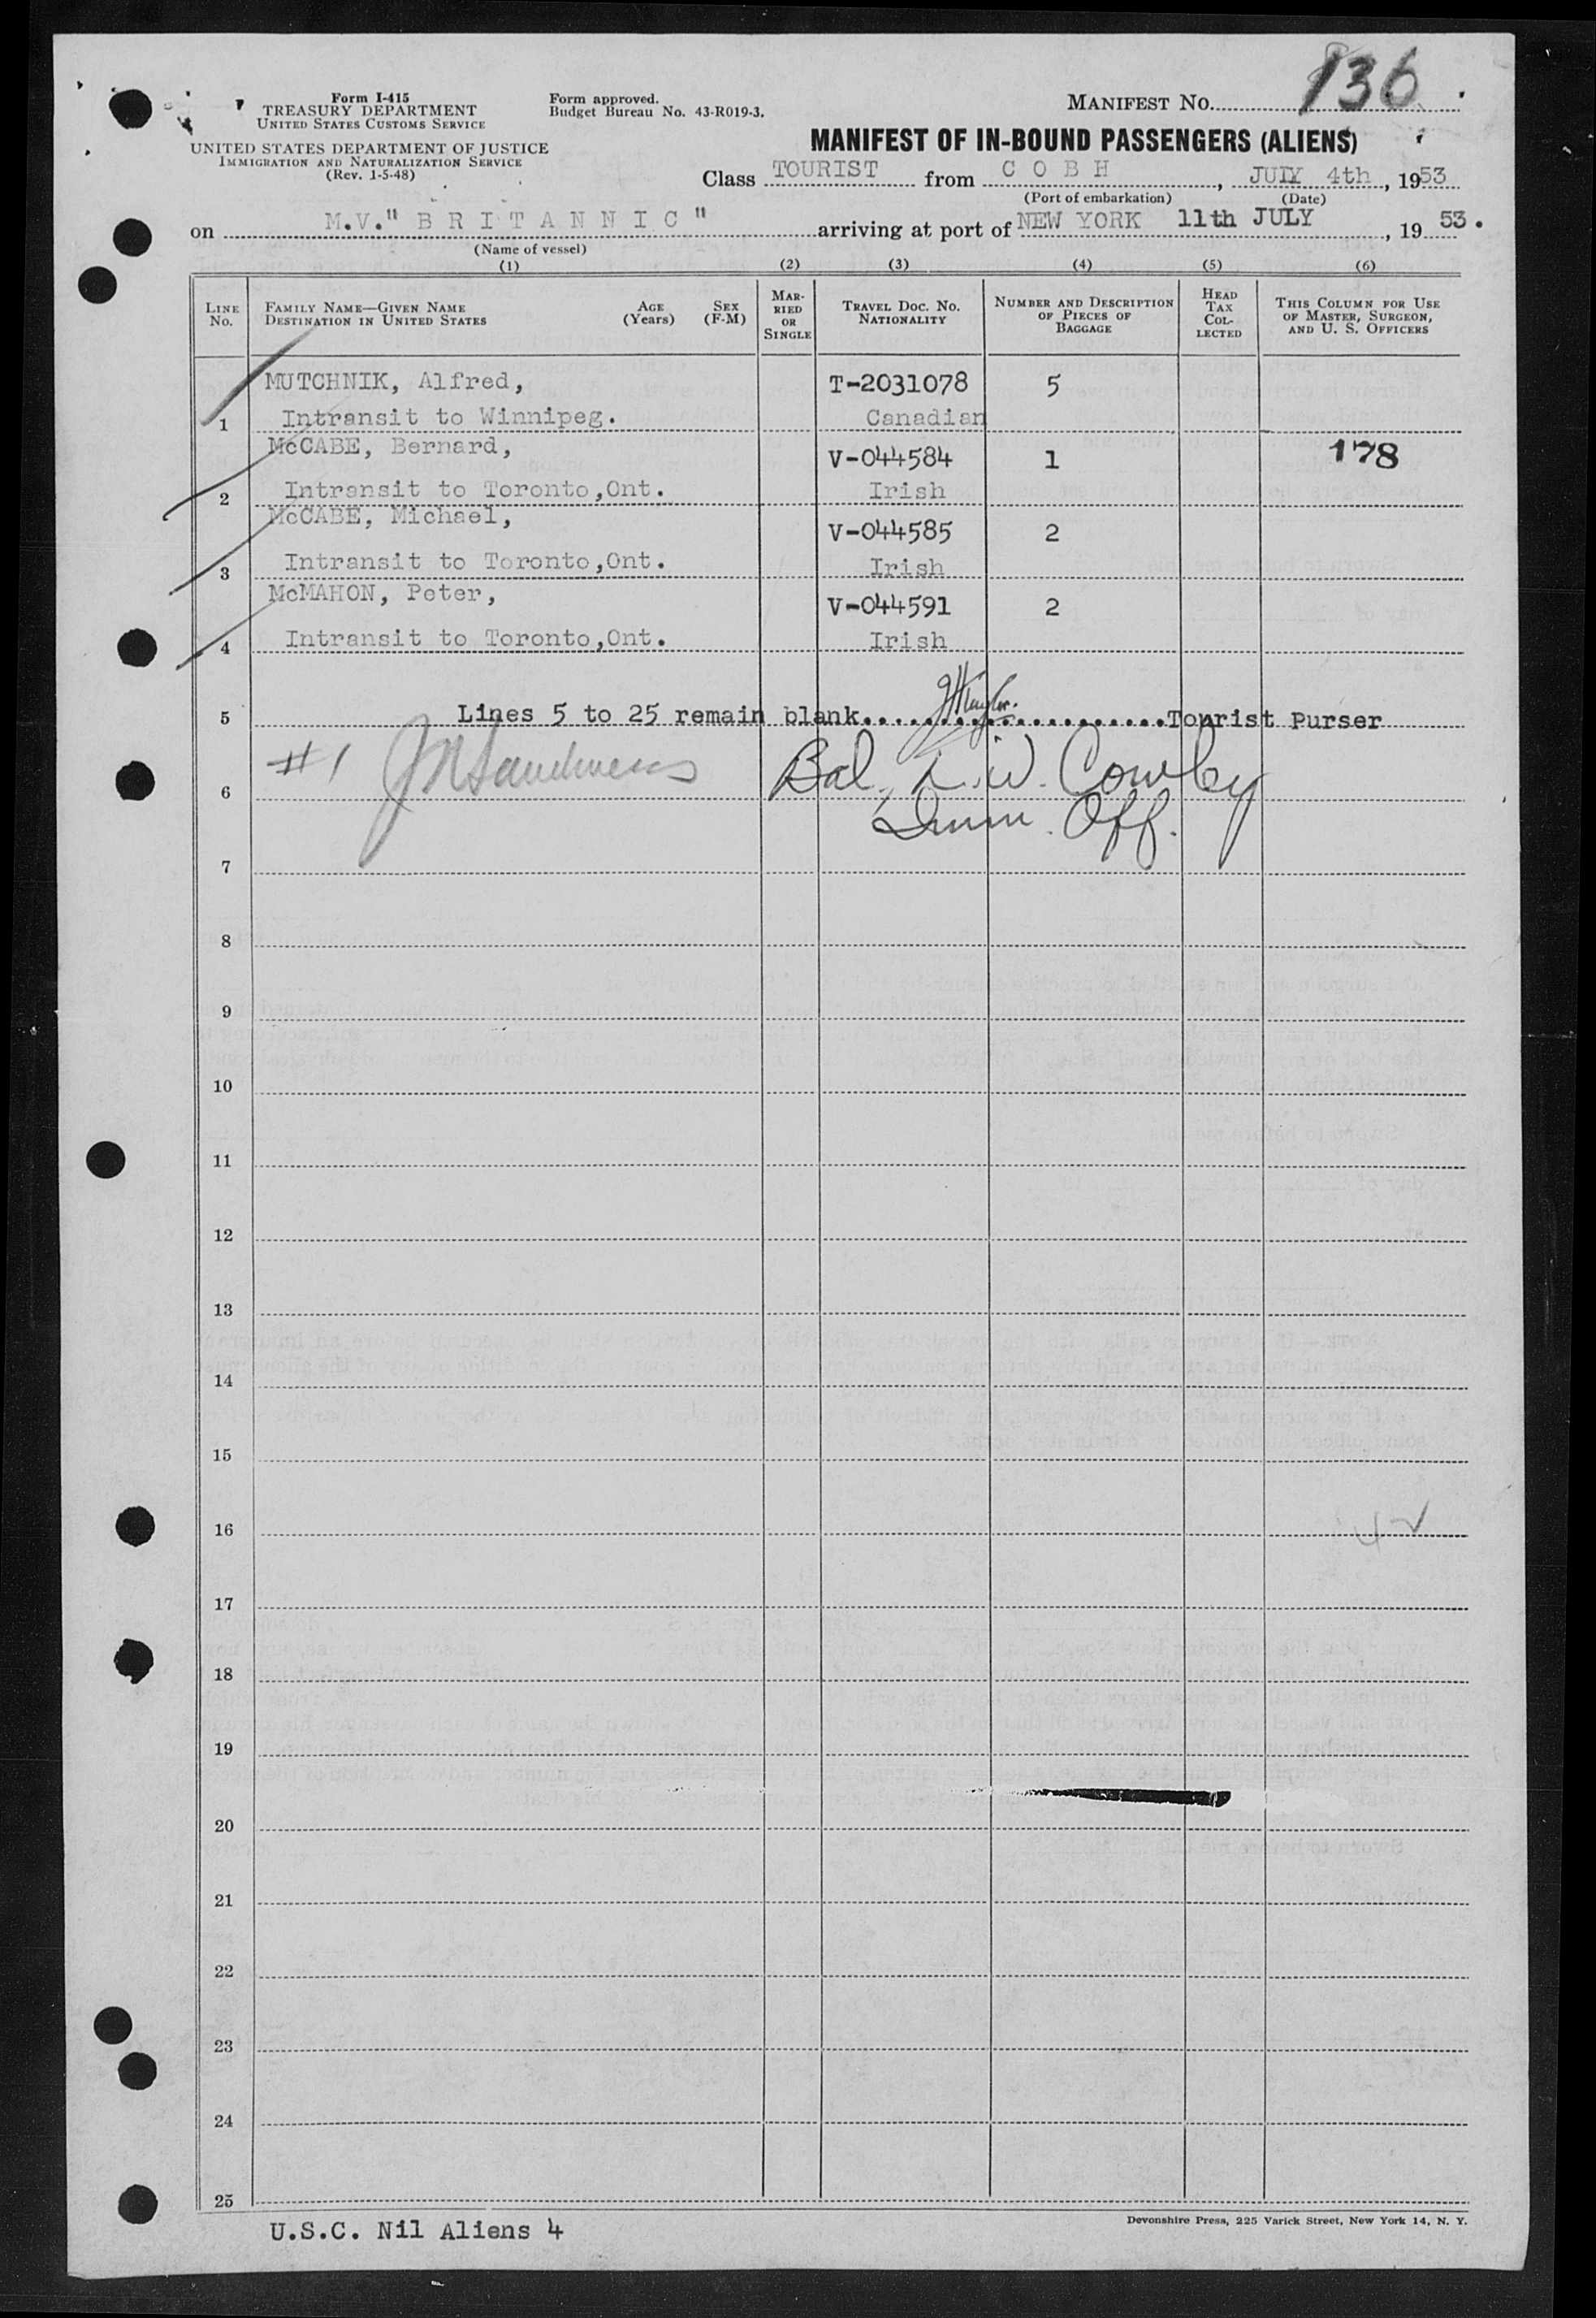 136
Form I-415
TREASURY DEPARTMENT
UNITED STATES CUSTOMS SERVICE
UNITED STATES DEPARTMENT OF JUSTICE
IMMIGRATION AND NATURALIZATION SERVICE
(Rev. 1-5-48)
Form approved.
Budget Bureau No. 43-R019-3.
MANIFEST NO.
MANIFEST OF IN-BOUND PASSENGERS (ALIENS)
Class TOURIST from C O B H, JULY 4th, 1953
(Port of embarkation) (Date)
on M.V." B R I T A N N I C " arriving at port of NEW YORK 11th JULY, 19 53.
(Name of vessel)
(1) (2) (3) (4) (5) (6)
LINE NO.
FAMILY NAME—GIVEN NAME
DESTINATION IN UNITED STATES
AGE (YEARS)
SEX (F-M)
MARRIED OR SINGLE
TRAVEL DOC. NO.
NATIONALITY
NUMBER AND DESCRIPTION OF PIECES OF BAGGAGE
HEAD TAX COLLECTED
THIS COLUMN FOR USE OF MASTER, SURGEON, AND U. S. OFFICERS
MUTCHNIK, Alfred, T-2031078 5
1 Intransit to Winnipeg. Canadian
McCABE, Bernard, V-044584 1 178
2 Intransit to Toronto,Ont. Irish
McCABE, Michael, V-044585 2
3 Intransit to Toronto,Ont. Irish
McMAHON, Peter, V-044591 2
4 Intransit to Toronto,Ont. Irish
5 Lines 5 to 25 remain blank.......................Tourist Purser
#1 Bal. L.W. Cowley
6
Imm. Off.
7
8
9
10
11
12
13
14
15
16
17
18
19
20
21
22
23
24
25
U.S.C. Nil Aliens 4
Devonshire Press, 225 Varick Street, New York 14, N. Y.